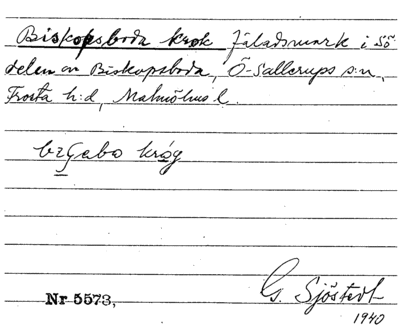 Biskopsboda krok Fäladsmark i Sö
delen av Biskopsboda, Ö-Sallerups s:n,
Frosta h:d, Malmöhus l.
kråg
G. Sjöstedt
Nr 5573,
1940